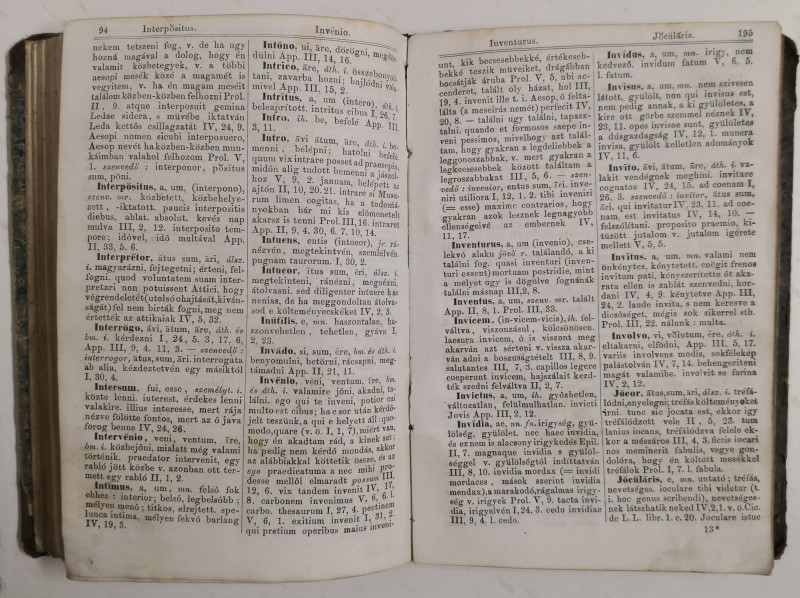 94 Interpŏsitus. Invĕnio.
nekem tetszeni fog, v. de ha ugy
hozná magával a dolog, hogy én
valamit közbetegyek, v. a többi
aesopi mesék közé a magamét is
vegyitem, v. ha én magam meséit
találom közben-közben felhozni Prol.
II, 9. atque interposuit gemina
Ledae sidera, s müvébe iktatván
Leda kettős csillagzatát IV, 24, 9.
Aesopi nomen sicubi interposuero,
Aesop nevét ha közben-közben mun-
káimban valahol felhozom Prol. V,
1. szenvedő : interponor, pŏsitus
sum, pōni.
Interpŏsitus, a, um, (interpono),
szenv. mr. közbetett, közbehelye-
zett, -iktatott. paucis interpositis
diebus, ablat. absolut. kevés nap
mulva III, 2, 12. interposito tem-
pore; idővel, idő multával App.
II, 33, 5. 6.
Interprĕtor, ātus sum, āri, álsz.
i. magyarázni, fejtegetni; érteni, fel-
fogni. quod voluntatem suam inter-
pretari non potuissent Attici, hogy
végrendeletét (utolsó ohajtását, kíván-
ságát) fel nem birták fogni, meg nem
értették az attikaiak IV, 5, 32.
Interrŏgo, āvi, ātum, āre, áth. és
bm. i. kérdezni I, 24, 5. 3, 17, 6,
App. III, 9, 4. 11, 3. — szenvedő :
interrogor, ātus, sum, āri. interrogatu
ab alia, kézdeztetvén egy másiktól
I, 30, 4.
Intersum, fui, esse, személyt. i.
közte lenni. interest, érdekes lenni
valakire. illius interesse, mert rája
nézve fölötte fontos, mert az ő java
forog benne IV, 24, 26.
Intervĕnio, veni, ventum, īre,
bm. i. közbejőni. mialatt még valami
történik. praedator intervenit, egy
rabló jött közbe v. azonban ott ter-
mett egy rabló II, 1, 2.
Intĭmus, a, um, mn. felső fok
ehhez : interior; belső, legbelsőbb ;
mélyen menő ; titkos, elrejtett. spe-
lunca intima, mélyen fekvő barlang
IV, 19, 3.
Intŏno, ui, āre, dörögni, megdör-
dülni App. III, 14, 16.
Intrīco, āre, áth. i. összebonyolí-
tani, zavarba hozni; bajlódni vala-
mivel App. III, 15, 2.
Intrītus, a, um (intero), áth. i.
beleaprított. intritus cibus I, 26, 7.
Intro, ih. be, befelé App. III,
3, 11.
Intro, āvi ātum, āre, áth. i. be-
menni, belépni; hatolni befelé.
quum vix intrare posset ad praesepia,
midőn alig tudott bemenni a jászol-
hoz V, 9, 2. januam, belépett az
ajtón II, 10, 20. 21. intrare si Musa-
rum limen cogitas, ha a tudomá-
nyokban bár mi kis előmenetelt
akarsz is tenni Prol. III, 16. intraret
App. II, 9, 4. 30, 6. 7. 10, 14.
Intuens, entis (intueor), jr. rá-
nézvén, megtekintvén, szemlélvén
pugnam taurorum. I, 30, 2.
Intueor, ĭtus sum, ēri, álsz. i.
megtekinteni, ránézni, megnézni,
átolvasni. sed diligenter intuere has
nenias, de ha meggondoltan átolva-
sod e költeményecskéket IV, 2, 3.
Inūtĭlis, e, mn. haszontalan, ha-
szonvehetlen, tehetlen, gyáva I,
2, 23.
Invādo, si, sum, ĕre, bm. és áth. i.
benyomulni, betörni, rácsapni, meg-
támadni App. II, 21, 11.
Invĕnio, vēni, ventum, īre, bm.
és áth. i. valamire jőni, akadni, ta-
lálni. ego qui te inveni, potior cui
multo est cibus; ha e sor után kérdő-
jelt teszünk, a qui e helyett áll: quo-
modo, quare (v. ö. I, 1, 7), miért van,
hogy én akadtam rád, a kinek szt;
ha pedig nem kérdő mondás, akkor
az alábbiakkal köttetik össze, és az
ego praedicatuma a nec mihi pro-
desse mellől elmaradt possum III,
12, 6. vix tandem invenit IV, 17,
8. carbonem invenimus V, 6, 6. i.
carbo. thesaurum I, 27, 4. pectinem
V, 6, 1. exitium invenit I, 31, 2.
qui pretium operibus maius inveni-
Inventurus. Jŏcŭlāris. 195
unt, kik becsesebbekké, értékeseb-
bekké teszik müveiket, drágábban
bocsátják áruba Prol. V, 5, ubi ac-
cenderet, talált oly házat, hol III,
19, 4. invenit ille t. i. Aesop, ő felta-
lálta (a meseírás nemét) perfecit IV,
20, 8. — találni ugy találni, tapasz-
talni. quando et formosos saepe in-
veni pessimos, mivelhogy azt talál-
tam, hogy gyakran a legdeliebbek a
leggonoszabbak, v. mert gyakran a
legkecsesebbek között találtam a
legroszabbakat III, 5, 6. — szen-
vedő : invenior, entus sum, īri. inve-
niri utiliora I, 12, 1. 2. tibi inveniri
(= esse) maxime contrarios, hogy
gyakran azok lesznek legnagyobb
ellenségeivé az embernek IV,
11, 17.
Inventurus, a, um (invenio), cse-
lekvő alaku jövő r. találandó, a ki
találni fog. quasi inventuri (inven-
turi essent) mortuam postridie, mint
a melyet ugy is dögölve fognának
találni másnap III, 2, 8.
Inventus, a, um, szenv. mr. talált
App. II, 8, 1. Prol. III, 33.
Invicem, (in-vicem-vicis), ih. fel-
váltva, viszonzásul, kölcsönösen.
laesura invicem, ő is viszont meg
akarván azt sérteni v. vissza akar-
ván adni a bosznságtételt III, 8, 9.
salutantes III, 7, 3. capillos legere
coeperunt invicem, hajszálait kezd-
ték szedni felváltva II, 2, 7.
Invictus, a, um, ih. győzhetlen,
változatlan, felülmulhatlan. invicti
Jovis App. III, 2, 12.
Invidia, ae, nn. fn. irigység, gyü-
lölség, gyülölet. nec haec invidia,
és ez nem is alacsony irigykedés Epil.
II, 7. magnaque invidia s gyülöl-
séggel v. gyülölségtől indíttatván
III, 8, 10. invidia mordax (= invidi
mordaces, mások szerint invidia
mendax), a marakodó, rágalmas irigy-
ség v. irigyek Prol. V, 9. tacta invi-
dia, irigyelvén I, 24, 3. cedo invidiae
III, 9, 4. l. cedo.
Invĭdus, a, um, mn. irigy, nem
kedvező. invidum fatum V, 6, 5.
l. fatum.
Invīsus, a, um, mn. nem szivesen
látott, gyülölt, non qui invisus est,
nem pedig annak, a ki gyülöletes, a
kire ott görbe szemmel néznek IV,
23, 11. opes invisae sunt, gyülöletes
a dúsgazdagság IV, 12, 1. munera
invisa, gyülölt kelletlen adományok
IV, 11, 6.
Invīto, āvi, ātum, āre, áth. i. va-
lakit vendégnek meghíni. invitare
cognatos IV, 24, 15. ad coenam I,
26, 3. szenvedő : invitor, ātus sum,
āri. qui invitatur IV, 23, 11. ad coe-
nam est invitatus IV, 14, 10. —
felszólítani. proposito praemio, ki-
tüzött jutalom v. jutalom igérete
mellett V, 5, 5.
Invītus, a, um, mn. valami nem
önkénytes, kénytetett. coëgit frenos
invitum pati, kényszerítette őt aka-
rata ellen is zablát szenvedni, hor-
dani IV, 4, 9. kénytetve App. III,
24, 2. laude invita, s nem keresve a
dicsőséget, mégis sok sikerrel stb.
Prol. III, 22. nálunk : multa.
Involvo, vi, vŏlutum, ĕre, áth. i.
eltakarni, elfödni, App. III, 5, 17.
variis involvens modis, sokfélekép
palástolván IV, 7, 14. behengeríteni
magát valamibe. involvit se farina
IV, 2, 12.
Jŏcor, ātus, sum, āri, álsz. i. tréfá-
lódni, enyelegni; tréfás költeményeket
irni. tunc sic jocata est, ekkor igy
tréfálódzott vele II, 5, 23. tum
lanius iocans, tréfálódzva felele ek-
kor a mészáros III, 4, 3. fictis iocari
nos meminerit fabulis, vegye gon-
dolóra, hogy én költött mesékkel
tréfálok Prol. I, 7. l. fabula.
Jŏcŭlāris, e, mn. untató; tréfás,
nevetséges. ioculare tibi videtur (t.
i. hoc genus scribendi), nevetséges-
nek látszhatik neked IV, 2, 1. v. ö. Cic.
de L.L. libr. 1. c. 20. Joculare istuc
13*